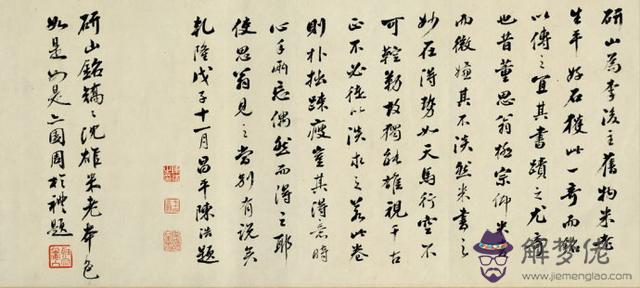 研山為李後主舊物米老
生平好石獲此一奇而銘
以傳之宜其書蹟之尤奇
也昔董思翁極宗仰米書
而微嫌其不淡然米書之
妙在得勢如天馬行空不
可控勒故獨能雄視千古
正不必徒以淡求之若此卷
則朴拙疎瘦豈其得意時
心手兩忘偶然而得之耶
使思翁見之當別有說矣
乾隆戊子十一月昌平陳浩題
研山銘沈雄米老本色
如是如是周於禮題
解梦佬
www.jiemenglao.com